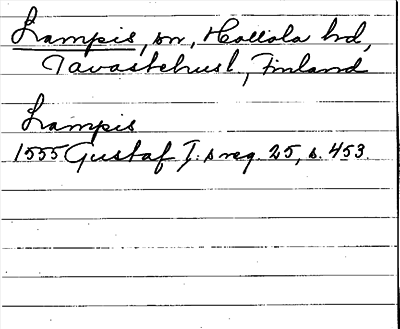 Lampis, sn, Hollola hd,
Tavastehusl, Finland
Lampis
1555 Gustaf I:s reg. 25, s. 453.